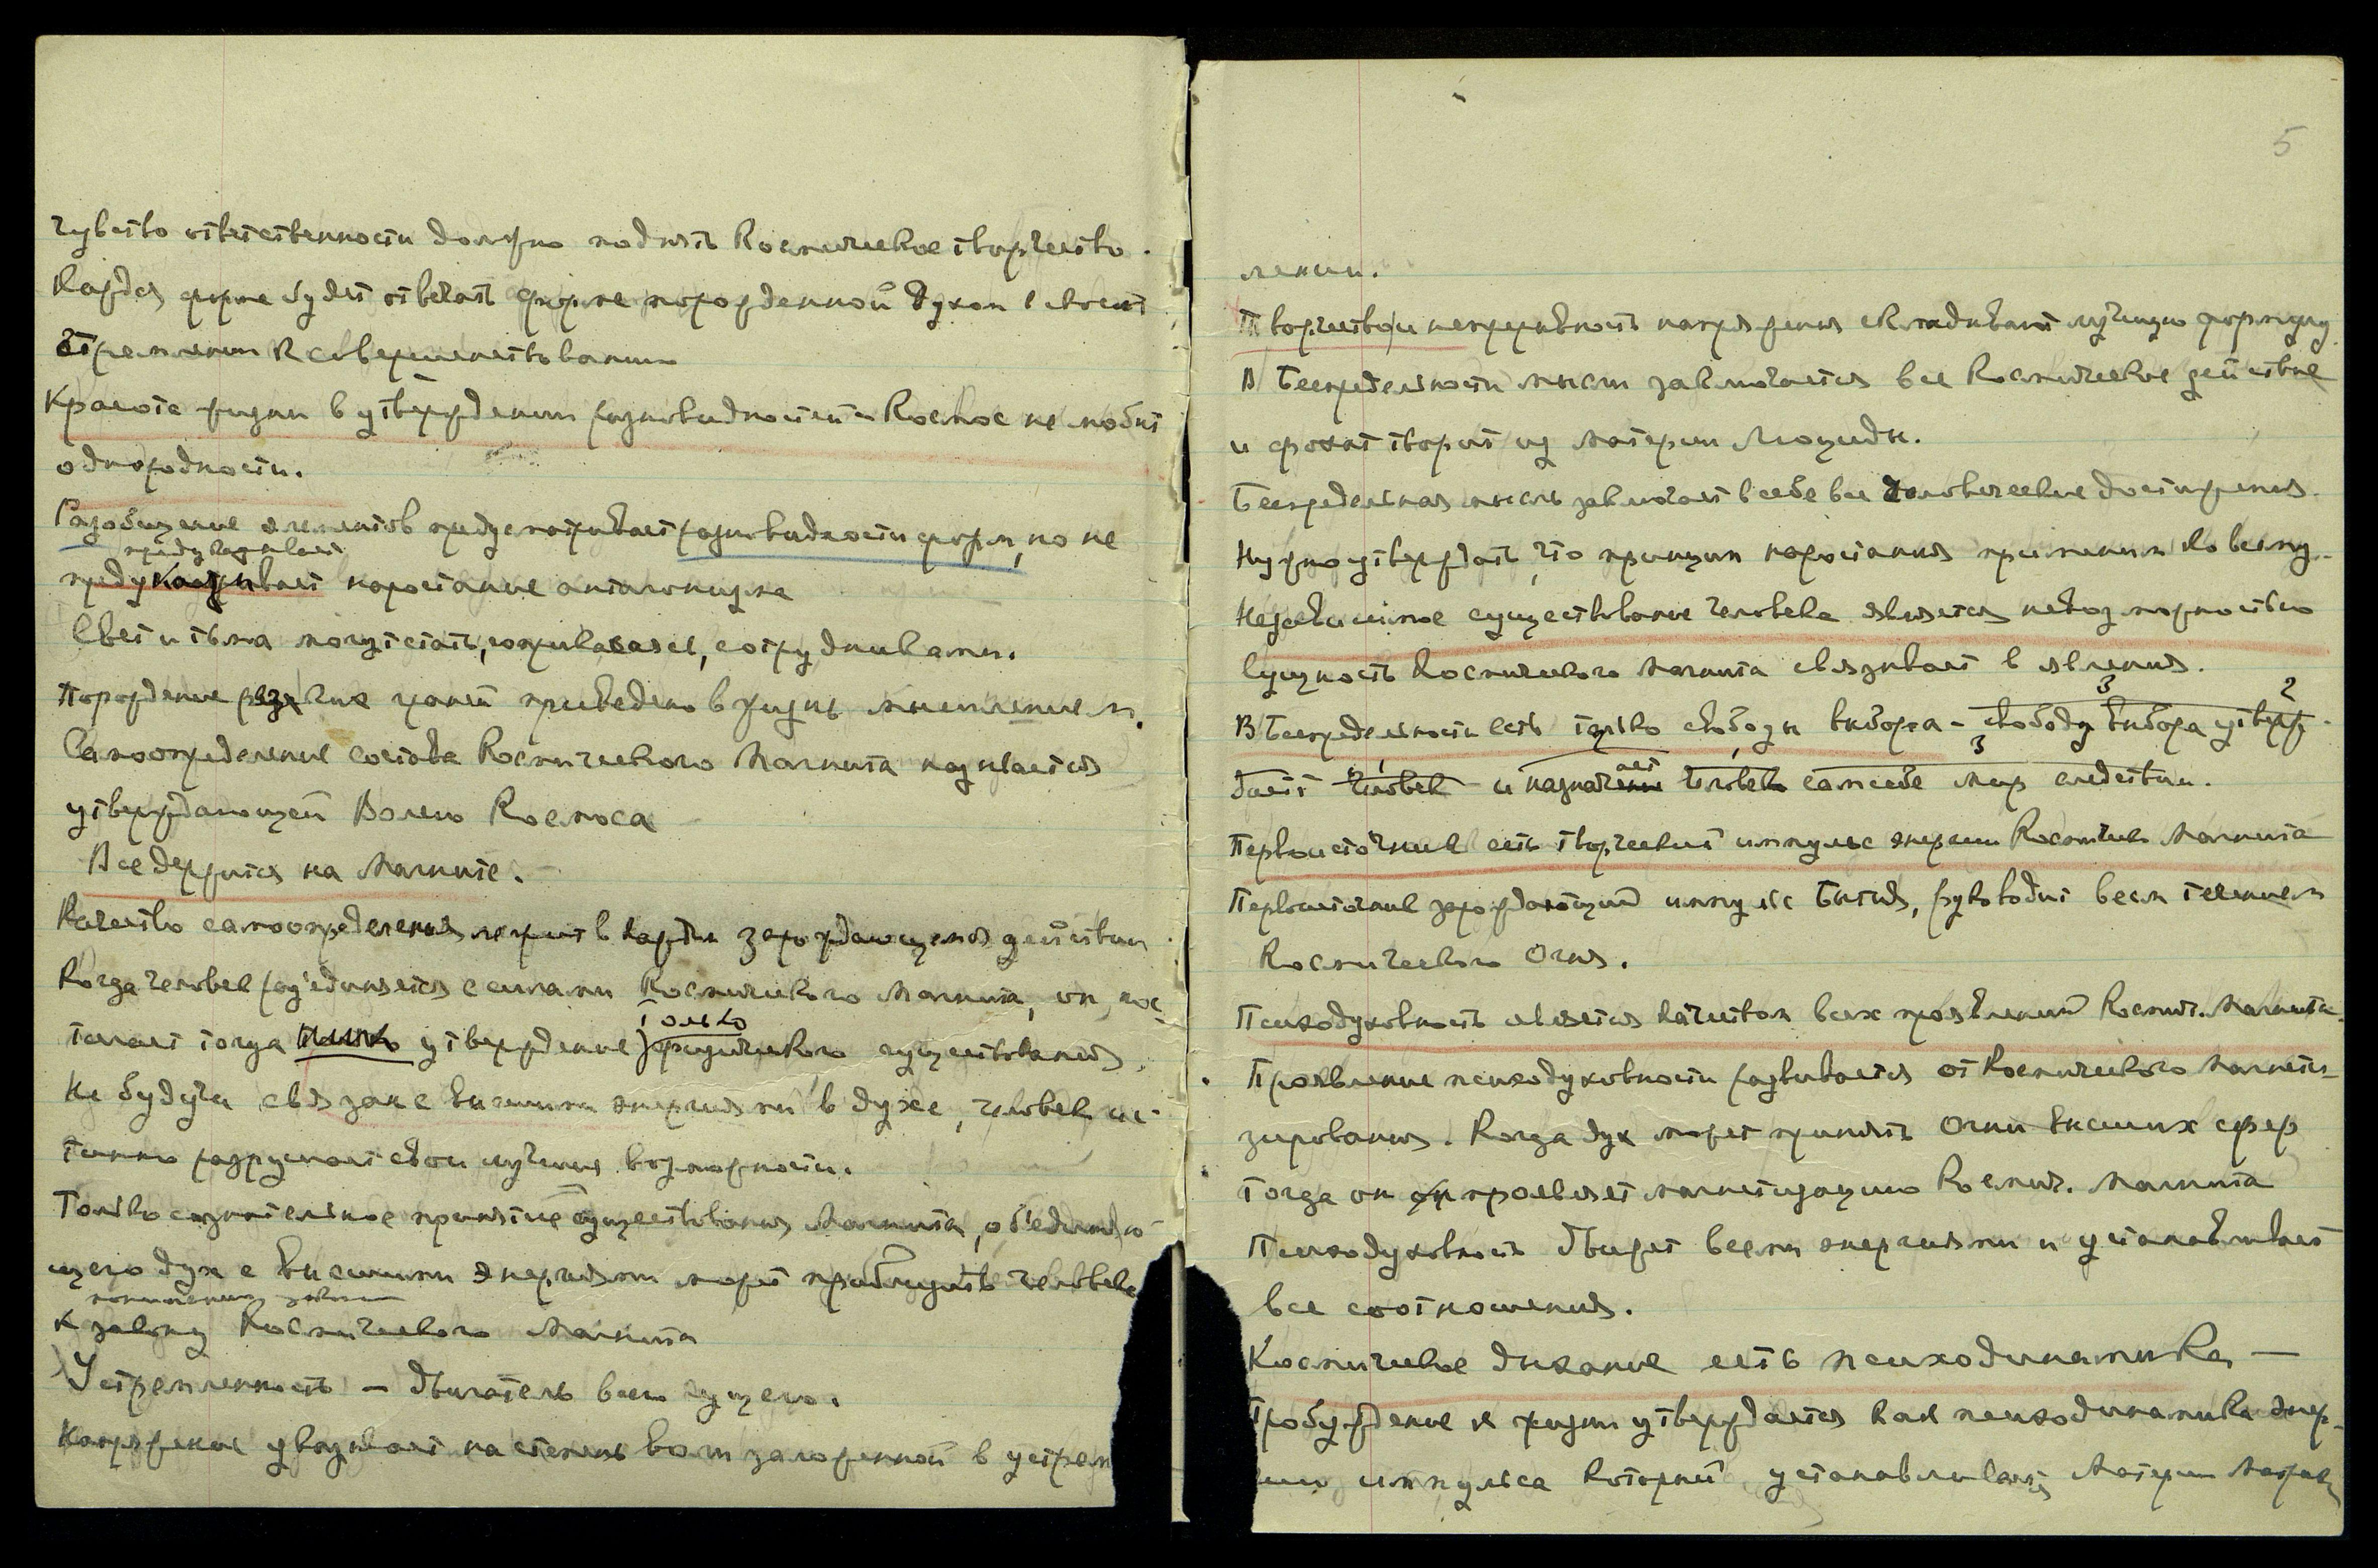 Чувство ответственности должно поднять Космическое творчество.
Каждая форма будет отвечать форме порожденной духом в своем
Стремлении к совершенствованию
Красота жизни в утверждении разновидностей – Космос не любит
однородности.
Разобщение элементов предусматривает разновидности форм, но не
предуказывает
предуказывает нарастание антагонизма
Свет и тьма могут стать, соприкасаясь, сотрудниками.
Порождение различия граней приведено в жизнь мышлением.
Самоопределение состава Космического Магнита называется
утверждающей Волею Космоса
Все держится на Магните.
Качество самоопределения лежит в каждом зарождающемся действии
Когда человек разъединяется с силами Космического Магнита, он пос-
только
тигает тогда утверждение физического существования.
Не будучи связан с высшими энергиями в духе, человек ис-
тинно разрушает свои лучшия возможности.
Только сознательное принятие существования Магнита, объединяю-
щего дух с высшими энергиями может приблизить человека
пониманию закона
к закону Космического Магнита
Устремленность – двигатель всего сущего.
Напряжение указывает на степень воли заложенной в устрем
5
лении.
Творчество и непрерывность напряжения складывают лучшую формулу.
В Беспредельности мысли заключается все Космическое действие
и фохат творит из Материи Люциды.
Беспредельная мысль заключает в себе все человеческие достижения.
Нужно утверждать, что принцип нарастания применим ко всему.
Независимое существование человека является невозможностью
Сущность Космического Магнита связывает в явления.
3 2
В Беспредельности есть только свободы выбора – свободу выбора утвер-
1 ает 3
дает человек и назначение человек сам себе мир следствий.
Первоисточник есть творческий импульс энергии Космическ Магнита
Первоисточник зарождающий импульс Бытия, руководит всем течением
Космического Огня.
Психодуховность является качеством всех проявлений Космич. Магнита.
Проявление психодуховности развивается от Космического Магнети-
зирования. Когда дух может принять Огни высших сфер
тогда он проявляет магнетизацию Космич. Магнита
Психодуховность движет всеми энергиями и устанавливает
все соотношения.
Космическое дыхание есть психодинамика –
Пробуждение к жизни утверждается как психодинамика энер-
импульса который устанавливает Материи